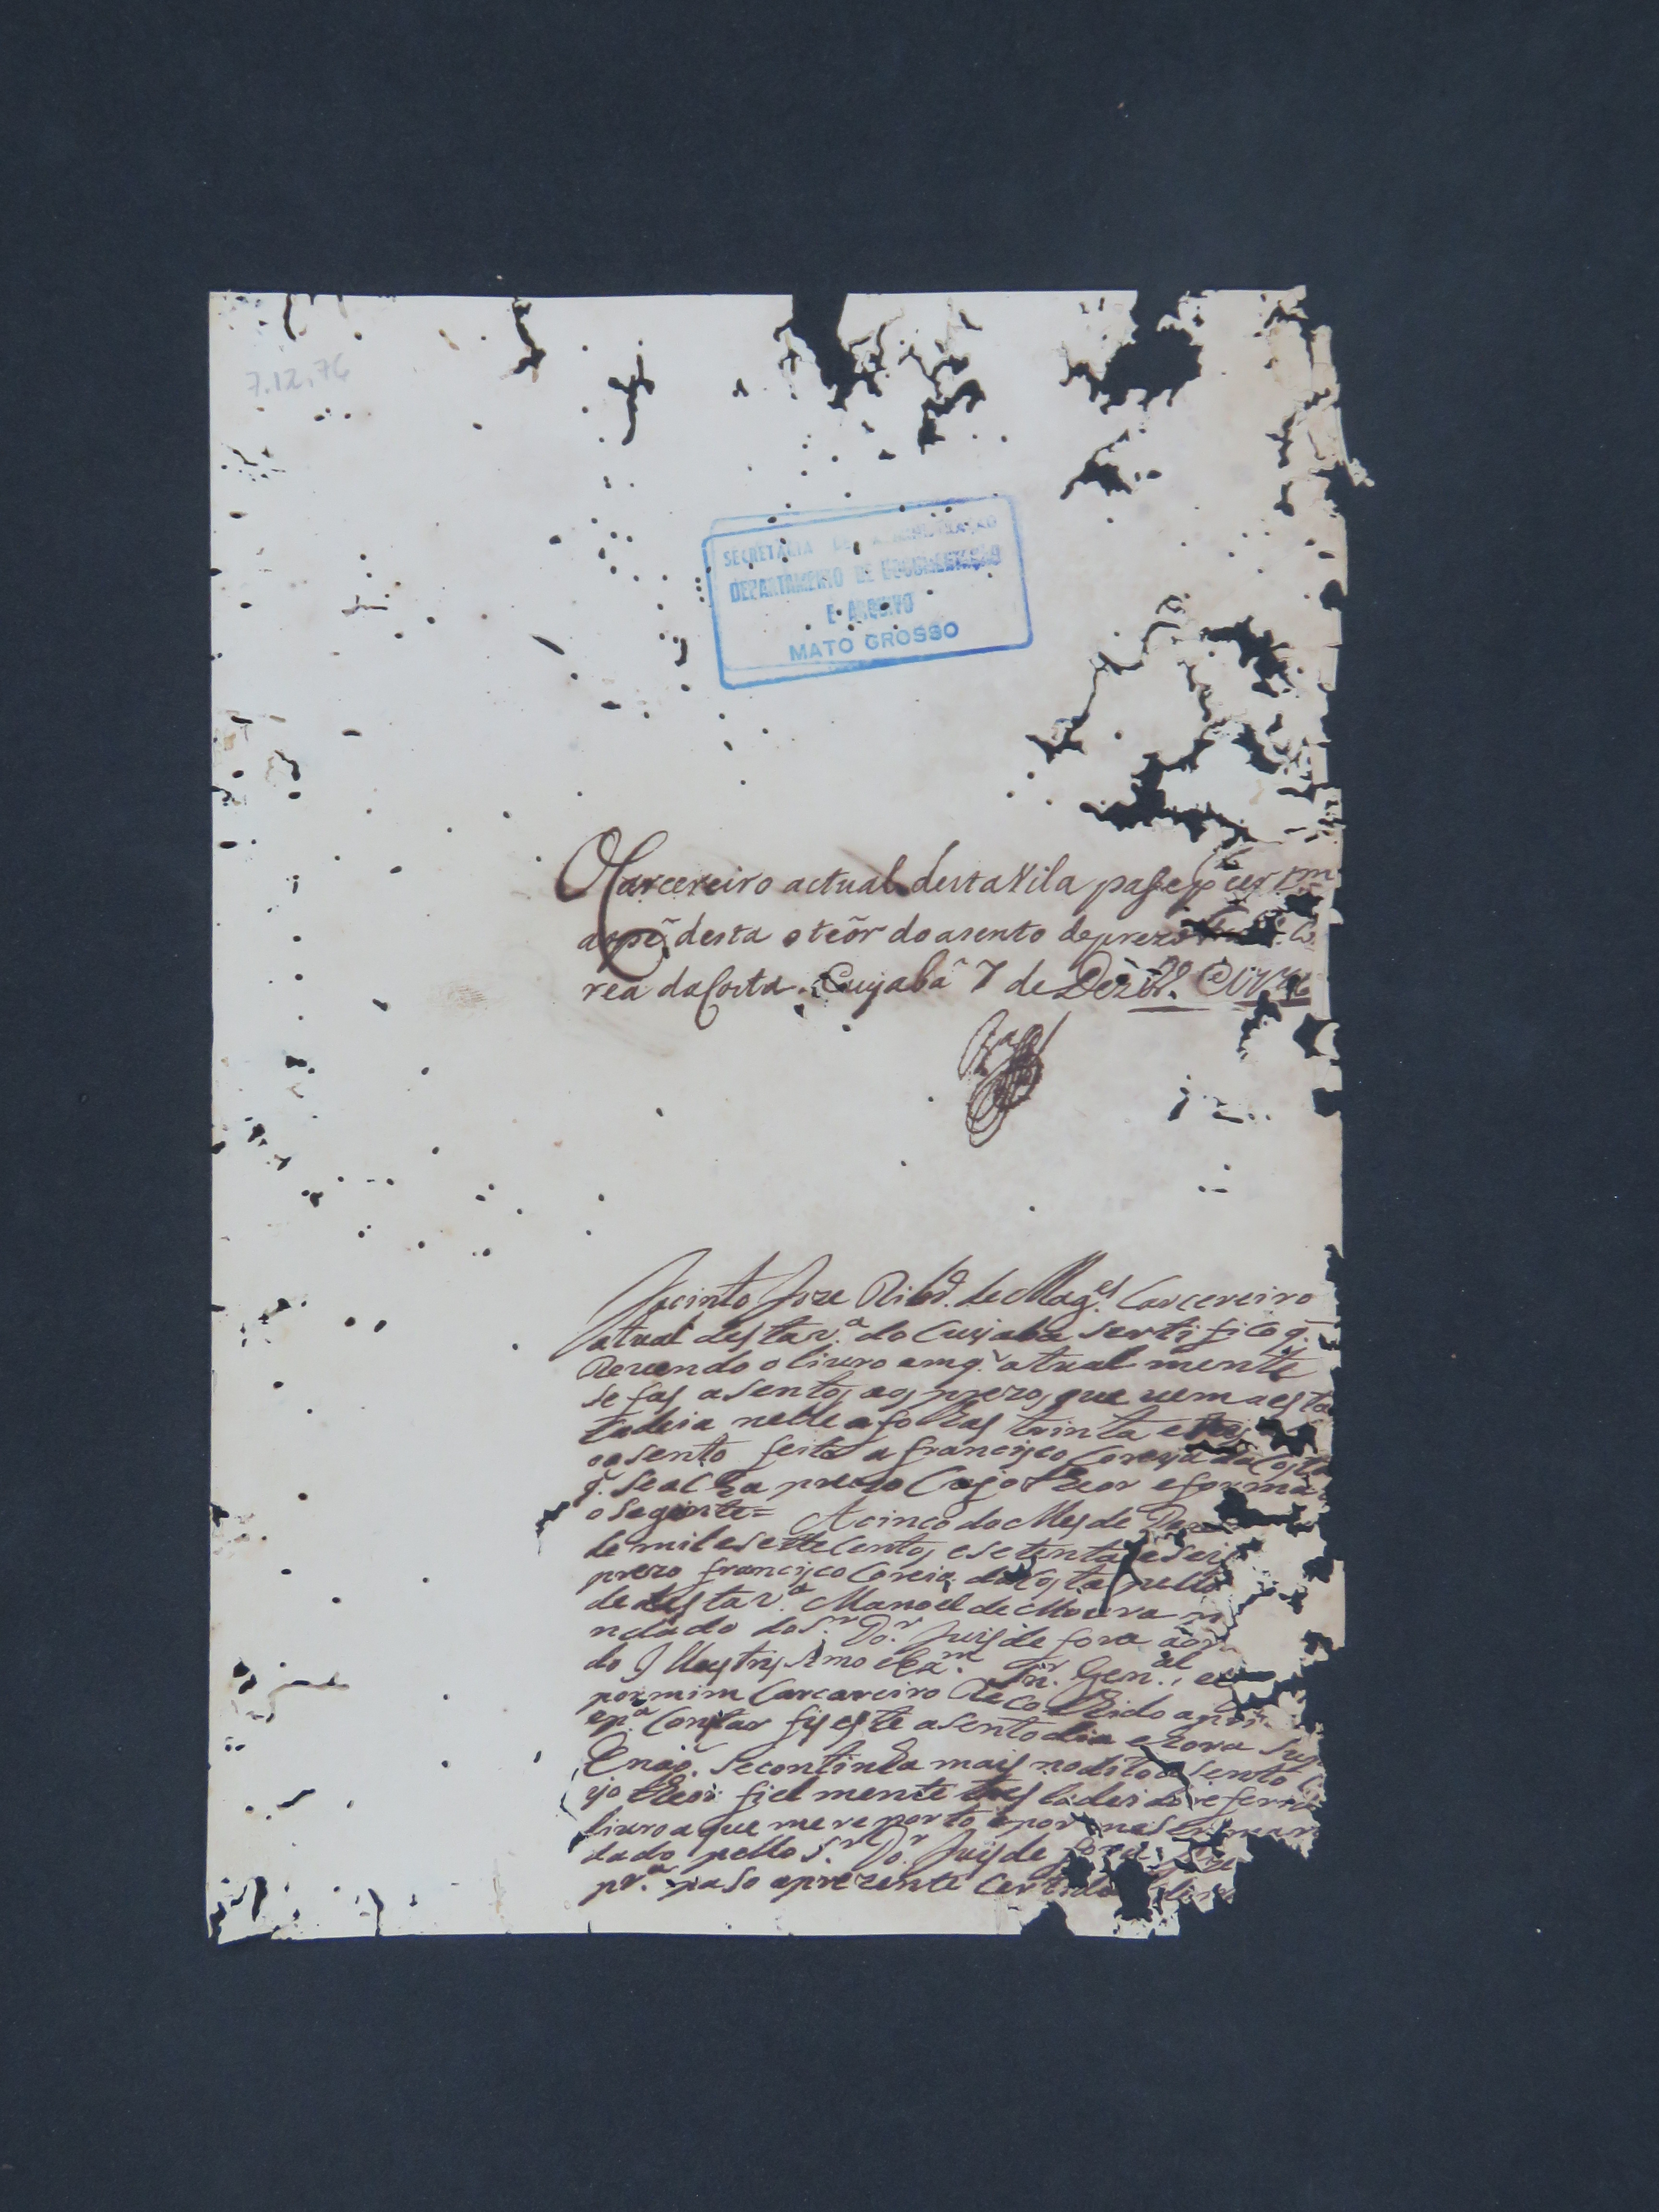 7.12.76
SECRETARIA DE ADMINISTRAÇÃO
DEPARTAMENTO DE DOCUMENTAÇÃO
E ARQUIVO
MATO GROSSO
O Carcereiro actual desta Vila pase p cer
ao pê desta o teôr do asento de prezo
rea da Costa. Cuyabâ 7 de Dezbr.º
Jacinto Joze Ribr.º de Mag.es Carcereiro
atual desta v.ª do Cuyaba sertifico q.
Revendo o livro em q. atual mente
se fas asentos aos prezos que vem a esta
Cadeia nelle a folhas trinta e
o asento feito a francisco Correya da Costa
q. se acha prezo Cujo theor e forma
o seginte= A cinco do Mes de
de mil e sette Centos e setenta e seis
prezo francisco Coreia da Costa pello
de desta v.ª Manoel de Moura
ndado do S.r Do.r Juis de fora
do Illustrisimo e Ex.mo Gen.al, e
por mim Carcareiro Recolhido a
e p.ª Constar fis este asento dia e hora
E não se continha mais no dito asento
jo theor fielmente tresladei do refer
livro a que me reporto e por me ser man
dado pello S.r Do.r Juis de fora
pr.ª paso a prezente